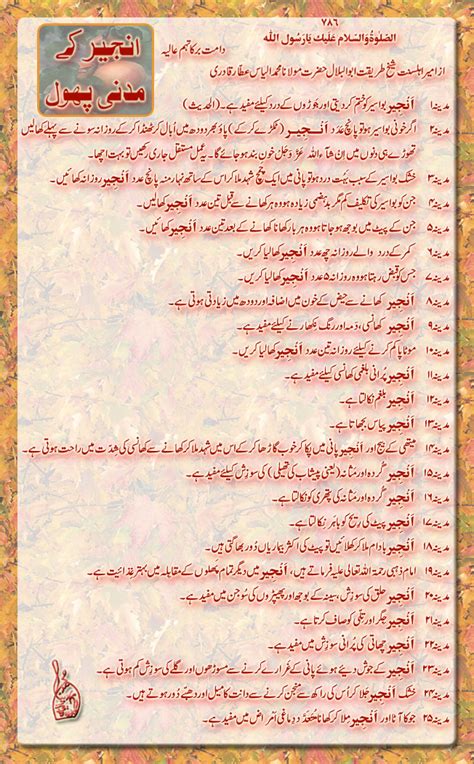 ۷۸۶
اَلصَّلٰوةُ وَالسَّلَام عَلَیْكَ یَارَسُوْلَ اللہ
انجیر کے
مدنی پھول
از امیر اہلسنت شیخ طریقت ابوالبلال حضرت مولانا محمد الیاس عطار قادری دامت برکاتہم عالیہ
مدینہ۱ اَنْجِیر بواسیر کو ختم کر دیتی اور جوڑوں کے درد کیلئے مفید ہے۔ (الحدیث)
مدینہ۲ اگر خونی بواسیر ہو تو پانچ عدد اَنْجِیر (ٹکڑے کر کے) پاؤ بھر دودھ میں اُبال کر ٹھنڈا کر کے روزانہ سونے سے پہلے کھا لیں
تھوڑے ہی دنوں میں اِن شآءاللہ عَزَّوَجَلَّ خون بند ہو جائے گا۔ یہ عمل مستقل جاری رکھیں تو بہت اچھا۔
مدینہ۳ خشک بواسیر کے سبب بہت درد ہو تو پانی میں ایک چمچ شہد ملا کر اس کے ساتھ نہار منہ پانچ عدد اَنْجِیر روزانہ کھائیں۔
مدینہ۴ جن کو بواسیر کی تکلیف کم مگر بدہضمی زیادہ ہو وہ ہر کھانے سے قبل تین عدد اَنْجِیر کھا لیں۔
مدینہ۵ جن کے پیٹ میں بوجھ ہو جاتا ہو وہ ہر بار کھانا کھانے کے بعد تین عدد اَنْجِیر کھائیں۔
مدینہ۶ کمر کے درد والے روزانہ چھ عدد اَنْجِیر کھا لیا کریں۔
مدینہ۷ جس کو قبض رہتا ہو وہ روزانہ ۵ عدد اَنْجِیر کھا لیا کریں۔
مدینہ۸ اَنْجِیر کھانے سے حیض کے خون میں اضافہ اور دودھ میں زیادتی ہوتی ہے۔
مدینہ۹ اَنْجِیر کھانسی، دمہ اور رنگ نکھارنے کیلئے مفید ہے۔
مدینہ۱۰ موٹاپا کم کرنے کیلئے روزانہ تین عدد اَنْجِیر کھا لیا کریں۔
مدینہ۱۱ اَنْجِیر پُرانی بلغمی کھانسی کیلئے مفید ہے۔
مدینہ۱۲ اَنْجِیر بلغم نکالتا ہے۔
مدینہ۱۳ اَنْجِیر پیاس بجھاتا ہے۔
مدینہ۱۴ میتھی کے بیج اور اَنْجِیر پانی میں پکا کر خوب گاڑھا کر کے اس میں شہد ملا کر کھانے سے کھانسی کی شدت میں راحت ہوتی ہے۔
مدینہ۱۵ اَنْجِیر گردہ اور مثانہ (یعنی پیشاب کی تھیلی) کی سوزش کیلئے مفید ہے۔
مدینہ۱۶ اَنْجِیر گردہ اور مثانہ کی پتھری کو نکالتا ہے۔
مدینہ۱۷ اَنْجِیر پیٹ کی ریح کو باہر نکالتا ہے۔
مدینہ۱۸ اَنْجِیر بادام ملا کر کھلائیں تو پیٹ کی اکثر بیماریاں دور بھاگتی ہیں۔
مدینہ۱۹ امام ذہبی رحمۃ اللہ تعالیٰ علیہ فرماتے ہیں، اَنْجِیر میں دیگر تمام پھلوں کے مقابلہ میں بہتر غذائیت ہے۔
مدینہ۲۰ اَنْجِیر حلق کی سوزش، سینہ کے بوجھ اور پھیپھڑوں کی سوجن میں مفید ہے۔
مدینہ۲۱ اَنْجِیر جگر اور تلی کو صاف کرتا ہے۔
مدینہ۲۲ اَنْجِیر چھاتی کی پُرانی سوزش میں مفید ہے۔
مدینہ۲۳ اَنْجِیر کے جوش دیئے ہوئے پانی کے غرارے کرنے سے مسوڑھوں اور گلے کی سوزش کم ہوتی ہے۔
مدینہ۲۴ خشک اَنْجِیر جلا کر اُس کی راکھ سے منجن کرنے سے دانت کا میل اور دھبے دُور ہوتے ہیں۔
مدینہ۲۵ جو کا آٹا اور اَنْجِیر ملا کر کھانا مُتعدد دماغی اَمراض میں مفید ہے۔